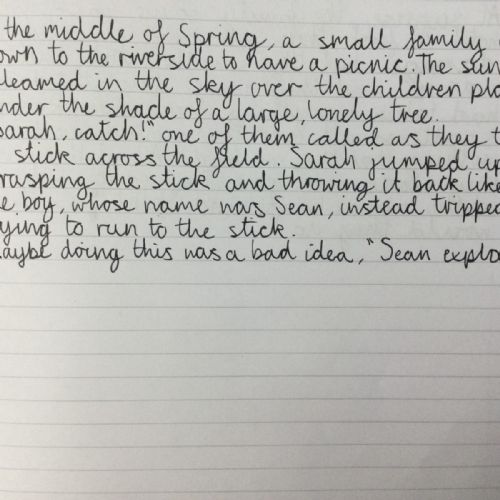 the middle of Spring, a small family
own to the riverside to have a picnic. The sun
leamed in the sky over the children pla
nder the shade of a large, lonely tree.
Sarah, catch!" one of them called as they t
stick across the field. Sarah jumped up
rasping the stick and throwing it back like
e boy, whose name was Sean, instead tripped
ying to run to the stick.
aybe doing this was a bad idea," Sean explo